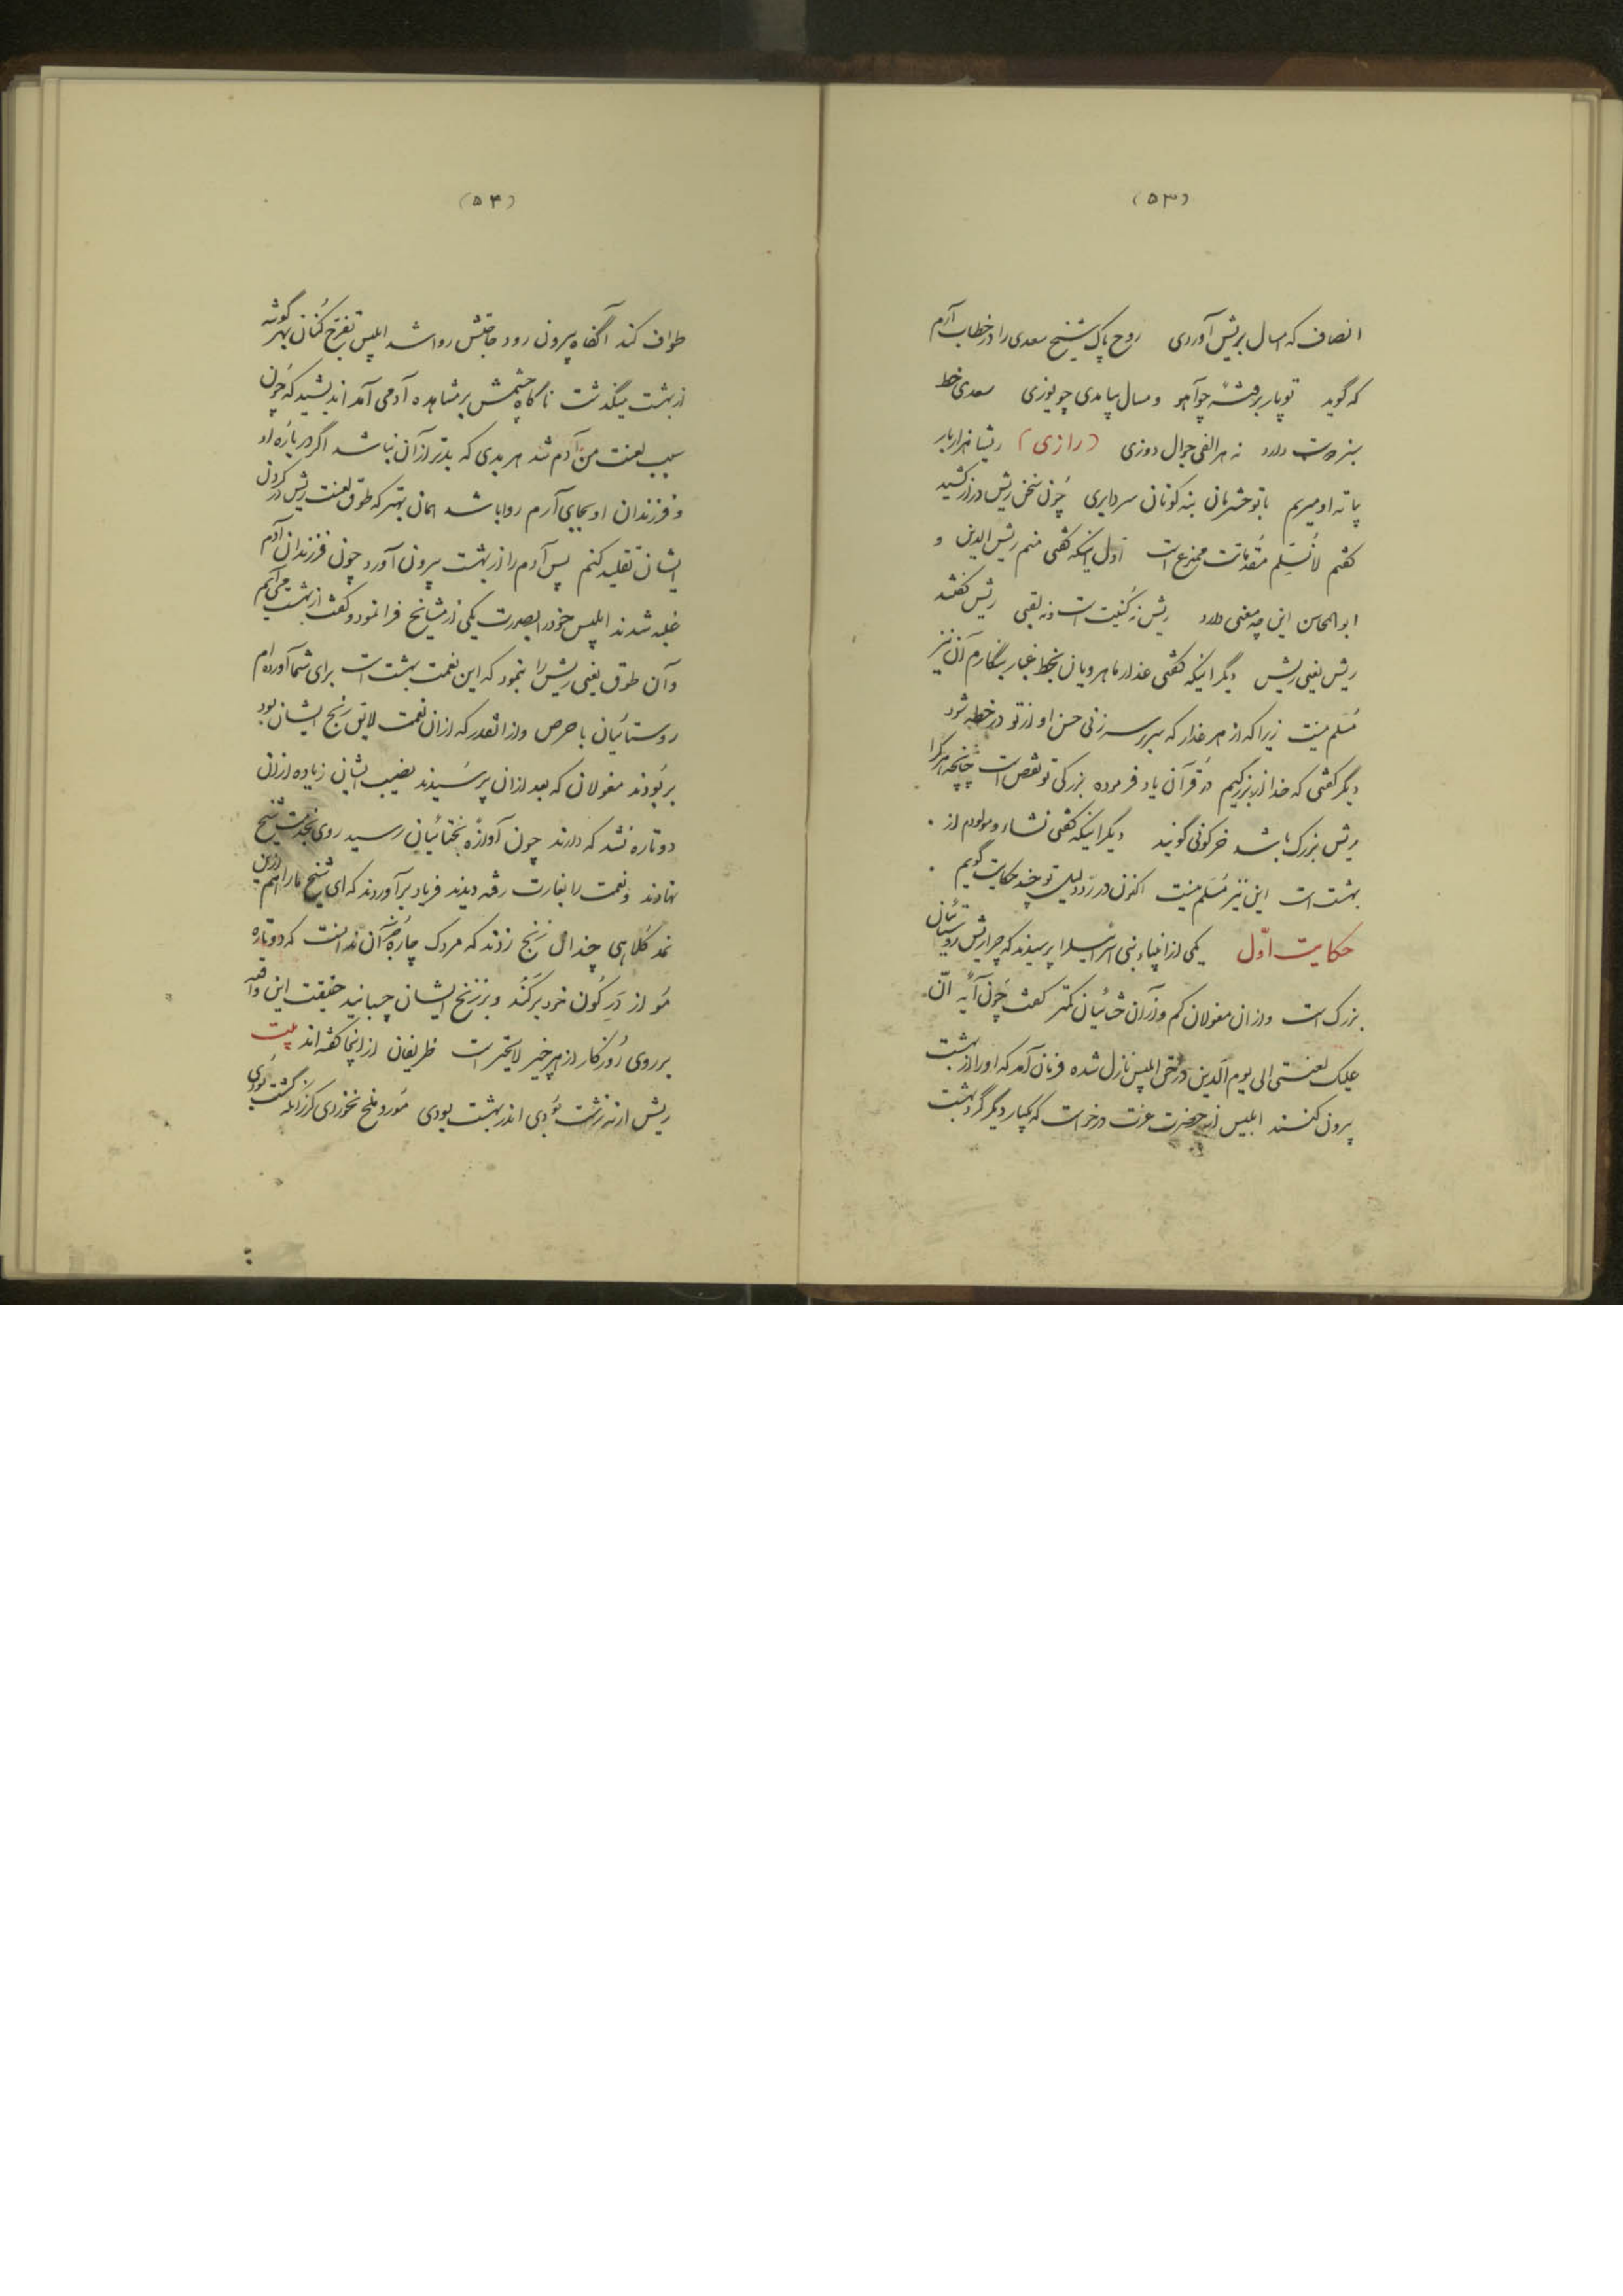 (۵۳)
انصاف که امسال بریش آوردی روح پاک شیخ سعدی را در خطاب آرم
که گوید تو پار برفتهٔ چو آهو و مسال بیامدی چو یوزی سعدی خط
سبز دوست دارد نه هر الفی جوال دوزی (رازی) ریشا هزار بار
پا ته او میریم باتو خشریان بنه کونان سردابری چون سخن ریش دراز کشید
گفتم لانُسَلِّم مقدّماتت ممنوع است اوّل اینکه گفتی منم ریش الدین و
ابوالمحاسن این چه معنی دارد ریش نه کُنیت است و نه لقبی ریش گفتند
ریش یعنی ریش دیگر اینکه گفتی عذار ماهرویان بخط غبار بنگارم آن نیز
مُسَلم نیست زیرا که از هر عذار که سر بر زنی حسن او از تو در خطر شود
دیگر گفتی که خدا از بزرگیم در قرآن یاد فرموده بزرگی تو نقص است چنانچه هر کرا
ریش بزرگ باشد خر کونی گویند دیگر اینکه گفتی نشاء و مولودم از
بهشت است این نیز مُسَلم نیست اکنون در ردّ دلیل تو چند حکایت گویم
حکایت اوّل یکی از انبیاء بنی اسرائیل را پرسیدند که چرا ریش روستائیان
بزرگ است و از ان مغولان کم و از آن ختائیان کمتر گفت چون آیه انّ
علیک لعنتی الی یوم الدین در حق ابلیس نازل شده فرمان آمد که او را از بهشت
بیرون کنند ابلیس از حضرت عزت درخواست که یکبار دیگر گرد بهشت
(۵۴)
طواف کند آنگاه بیرون رود حاجتش روا شد ابلیس تفرّج کُنان بهر گوشه
از بهشت میگذشت ناگاه چشمش بر مشاهده آدمی آمد اندیشید که چون
سبب لعنت من آدم شد هر بدی که بدتر از آن نباشد اگر در باره او
و فرزندان او بجای آرم روا باشد همان بهتر که طوق لعنت ریش در گردن
ایشان تقلید کنم پس آدم را از بهشت بیرون آورد چون فرزندان آدم
غلبه شدند ابلیس خود را بصورت یکی از مشایخ فرا نمود و گفت از بهشت می آیم
و آن طوق یعنی ریش را بنمود که این نعمت بهشت است برای شما آورده ام
روستائیان با حرص و از انقدر که از ان نعمت لایق زنخ ایشان بود
بربُودند مغولان که بعد از ان پرسیدند نصیب ایشان زیاده از ان
دو تاره نشد که دارند چون آوازه بختائیان رسید روی بخدمت شیخ
نهادند و نعمت را بغارت رفته دیدند فریاد برآوردند که ای شیخ ما را هم ازین
نمد کُلاهی چندان زنخ زدند که مردک چاره جز آن ندانست که دو تاره
مُو از دَرِ کُون خود برکَند و بر زنخ ایشان چسبانید حقیقت این واقعه
بر روی رُوزگار از هر چیز لایحتر است ظریفان از اینجا گفته اند بیت
ریش ار نه زشت بُودی اندر بهشت بودی مُورد ملخ نخوردی گر زانکه گشت بُودی